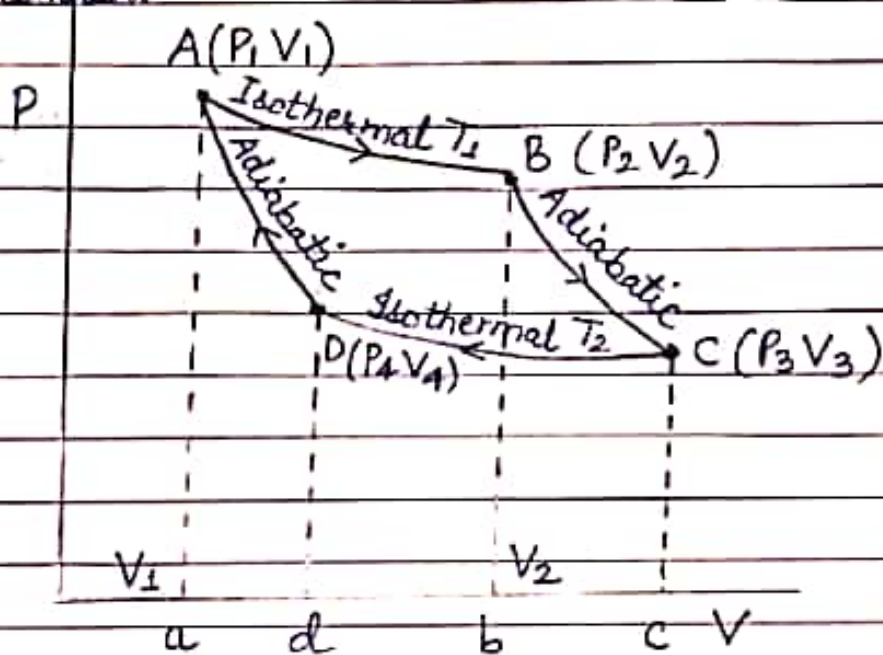 A(P₁ V₁)
P
Isothermal T₁
B (P₂ V₂)
Adiabatic
Adiabatic
Isothermal T₂
D(P₄ V₄)
C (P₃ V₃)
V₁
V₂
a d b c V